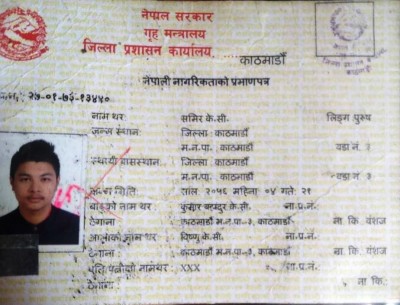 नेपाल सरकार
गृह मन्त्रालय
जिल्ला प्रशासन कार्यालय, काठमाडौं
नेपाली नागरिकताको प्रमाणपत्र
२७-०१-७३-१३४४०
नाम थर: समिर के.सी. लिङ्ग पुरुष
जन्म स्थान: जिल्ला काठमाडौं
म.न.पा. काठमाडौं वडा नं.
स्थायी बासस्थान: जिल्ला काठमाडौं
म.न.पा. काठमाडौं वडा नं.
जन्म मिति: साल २०५६ महिना ०४ गते २१
बाबुको नाम थर: के.सी. ना.प्र.नं.
ठेगाना: काठमाडौं म.न.पा.-३, काठमाडौं ना. कि. वंशज
आमाको नाम थर: विष्णु के.सी. ना.प्र.नं.
ठेगाना: काठमाडौं म.न.पा.-३, काठमाडौं ना. कि. वंशज
पति/पत्नीको नामथर: XXX ना.प्र.नं.
ठेगाना: ना. कि.